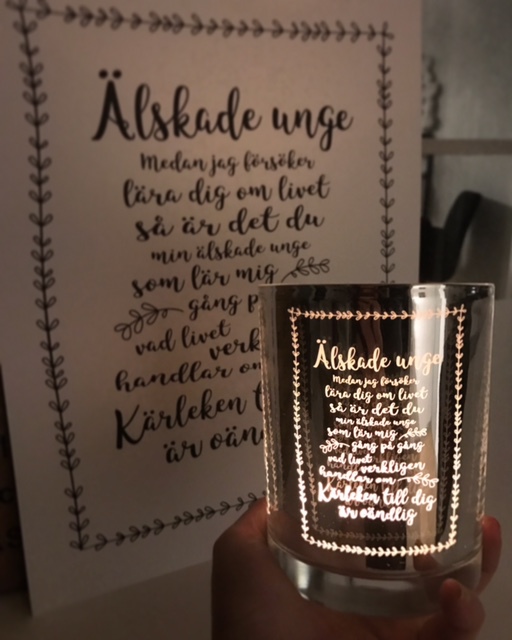 Älskade unge
Medan jag försöker
lära dig om livet
så är det du
min älskade unge
som lär mig
gång p
vad livet
verk
handlar om
Kärleken t
är oän
Älskade unge
Medan jag försöker
lära dig om livet
så är det du
min älskade unge
som lär mig
gång på gång
vad livet
verkligen
handlar om
Kärleken till dig
är oändlig